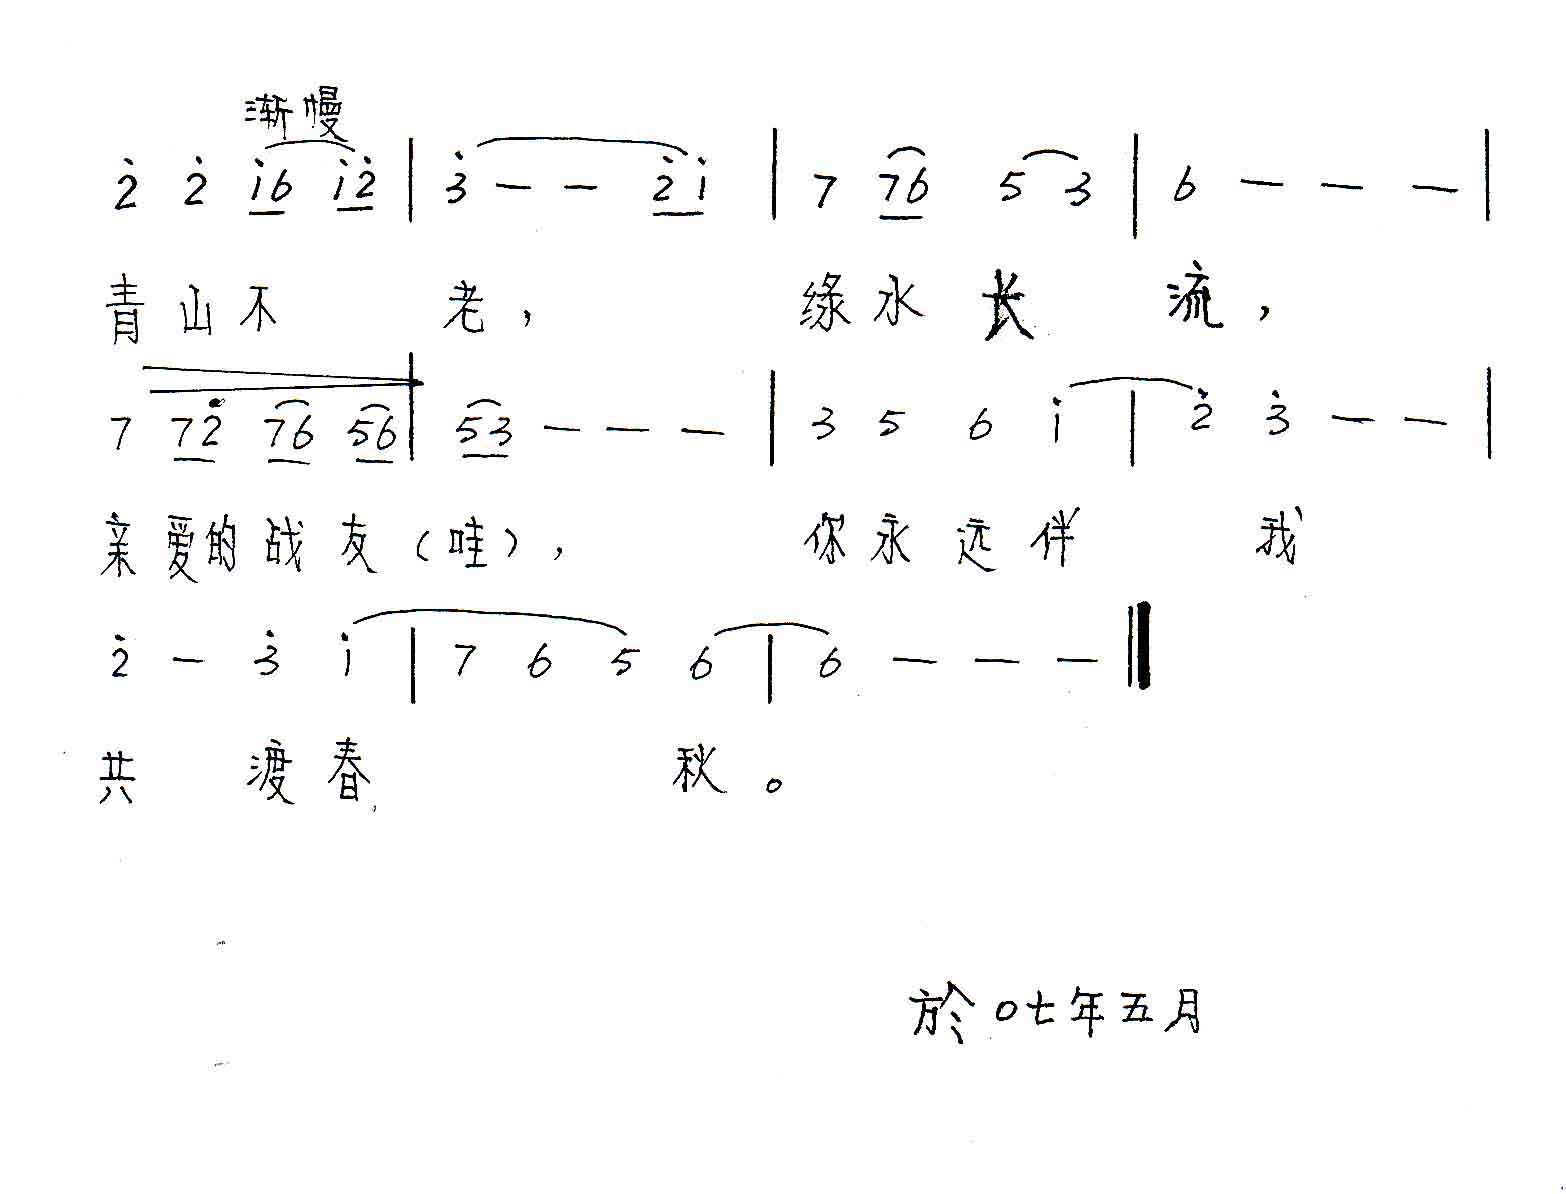 渐慢
2̇ 2̇ i̇6 i̇2̇ | 3̇ — — 2̇i̇ | 7 76 5 3 | 6 — — — |
青山不 老， 缘水长 流，
7 72̇ 76 56 | 53 — — — | 3 5 6 i̇ | 2̇ 3̇ — — |
亲爱的战友（哇）， 你永远伴 我
2̇ — 3̇ i̇ | 7 6 5 6 | 6 — — — ‖
共 渡春 秋。
於〇七年五月